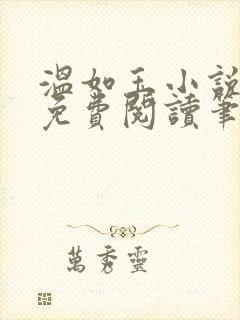 溫如玉小說
免費閱讀筆
萬秀靈